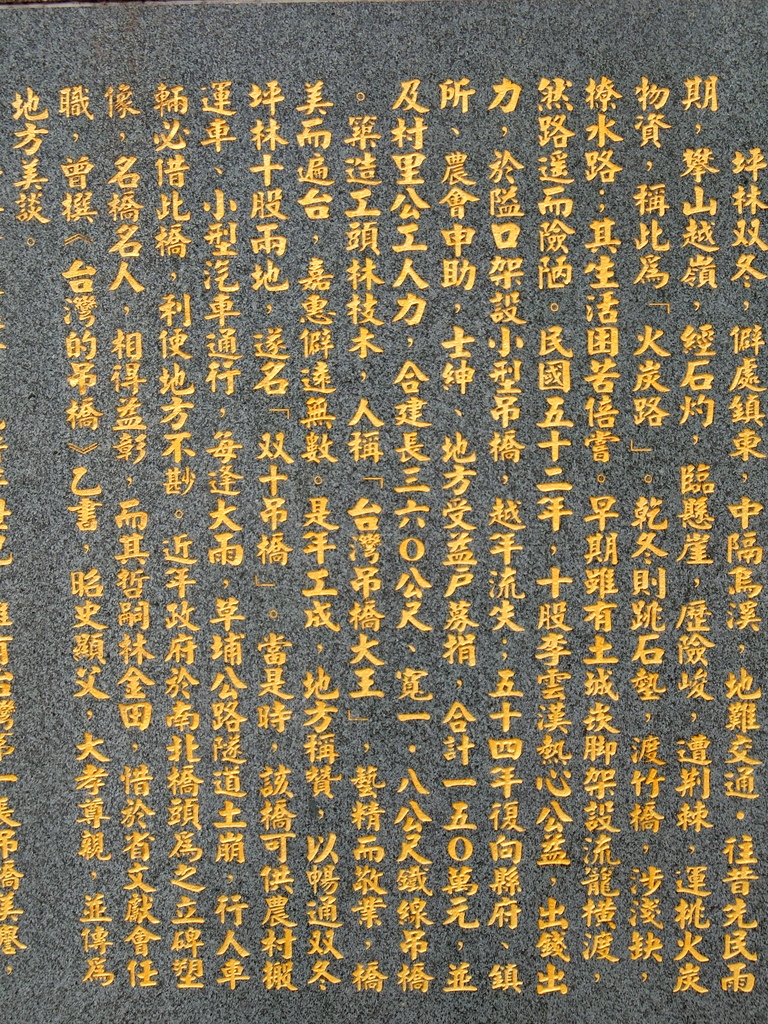 坪林双冬，僻處鎮東，中隔烏溪，地難交通．往昔先民雨
期，攀山越嶺，經石灼，臨懸崖，歷險峻，遭荆棘，運桃火炭
物資，稱此爲「火炭路」。乾冬則跳石墊，渡竹橋，涉淺缺，
撩水路；其生活困苦倍嘗。早期雖有土城崁脚架設流籠橫渡，
然路遥而險陋。民國五十二年，十股李雲漢熱心公益，出錢出
力，於隘口架設小型吊橋，越年流失；五十四年復向縣府、鎮
所、農會申助，士紳、地方受益戶募捐，合計一五０萬元，並
及村里公工人力，合建長三六０公尺、寬一．八公尺鐵線吊橋
。築造工頭林枝木，人稱「台灣吊橋大王」，藝精而敬業，橋
美而遍台，嘉惠僻遠無數。是年工成，地方稱贊，以暢通双冬
坪林十股兩地，遂名「双十吊橋」。當是時，該橋可供農村搬
運車、小型汽車通行，每逢大雨，草埔公路隧道土崩，行人車
輛必借此橋，利便地方不尠。近年政府於南北橋頭爲之立碑塑
像，名橋名人，相得益彰，而其哲嗣林金田，惜於省文獻會任
職，曾撰《台灣的吊橋》乙書，昭史顯父，大孝尊親，並傳爲
地方美談。
台灣第一長吊橋美譽，